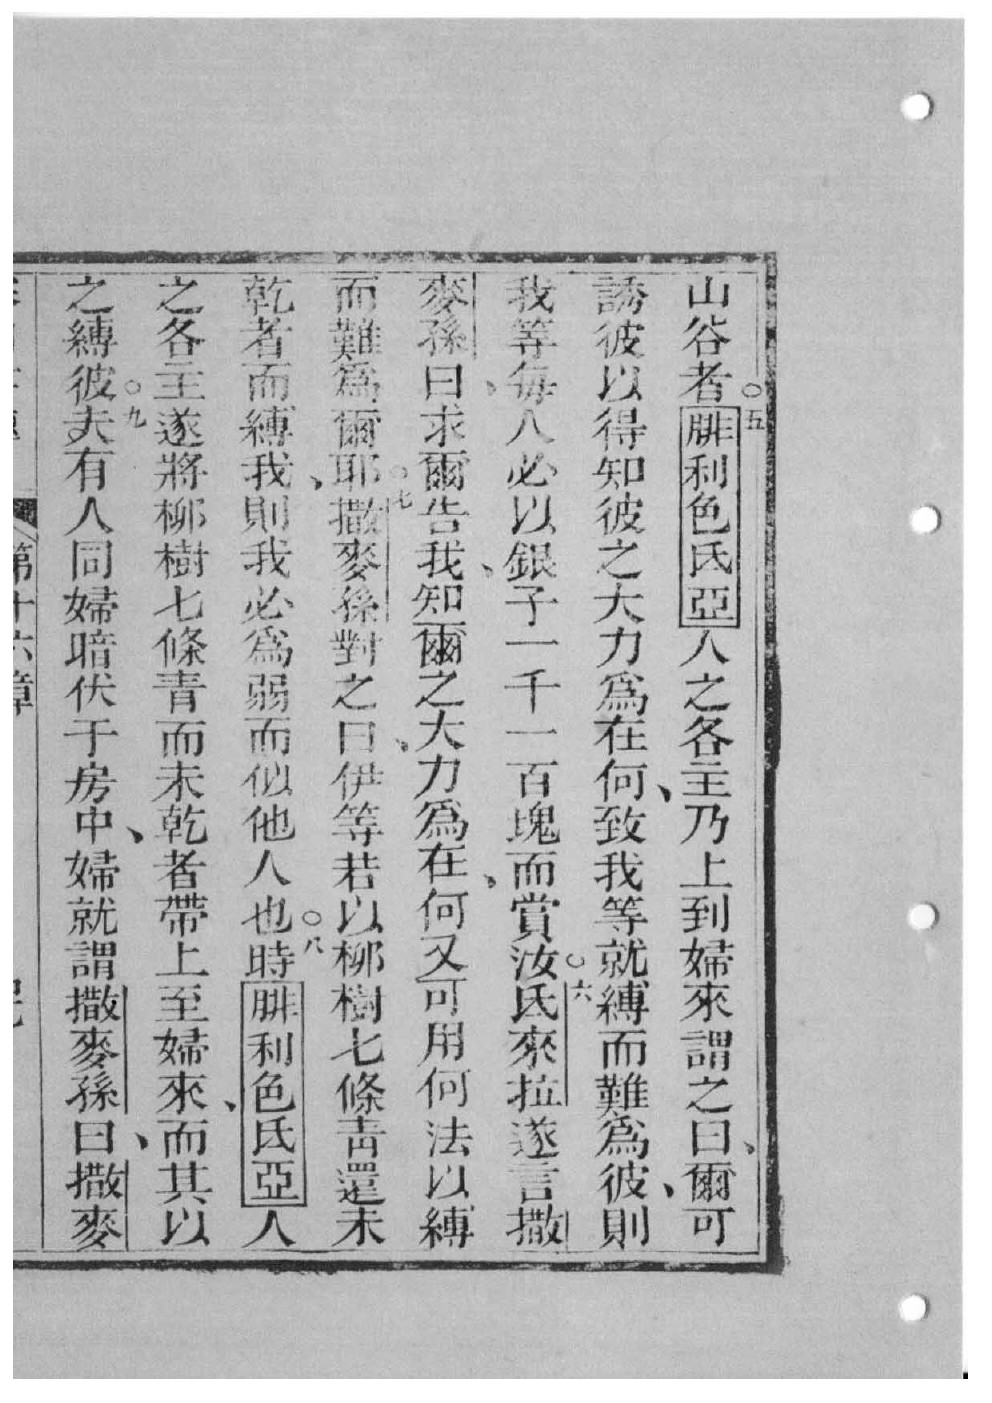 山谷者○五腓利色氏亞人之各主乃上到婦來謂之曰、爾可
誘彼以得知彼之大力爲在何、致我等就縛而難爲彼、則
我等每人必以銀子一千一百塊而賞汝○六氐來拉遂言撒
麥孫曰、求爾告我、知爾之大力爲在何、又可用何法以縛
而難爲爾耶○七撒麥孫對之曰、伊等若以柳樹七條青還未
乾者而縛我、則我必爲弱而似他人也○八時腓利色氐亞人
之各主遂將柳樹七條青而未乾者帶上至婦來、而其以
之縛彼○九夫有人同婦暗伏于房中、婦就謂撒麥孫曰、撒麥
第十六章